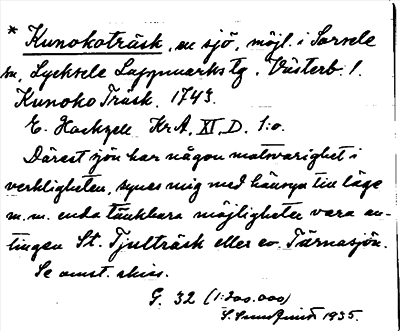 * Kunokoträsk, en sjö, möjl. i Sorsele
sn, Lycksele Lappmarks tg, Västerb. l.
Kunoko Träsk. 1743.
E. Hackzell KrA, XI, D. 1:o.
Därest sjön har någon motsvarighet i
verkligheten, synes mig med hänsyn till läge
m.m. enda tänkbara möjligheten vara an-
tingen St. Tjulträsk eller ev. Tärnasjön.
Se omst. skiss.
G. 32 (1:200.000)
1935.